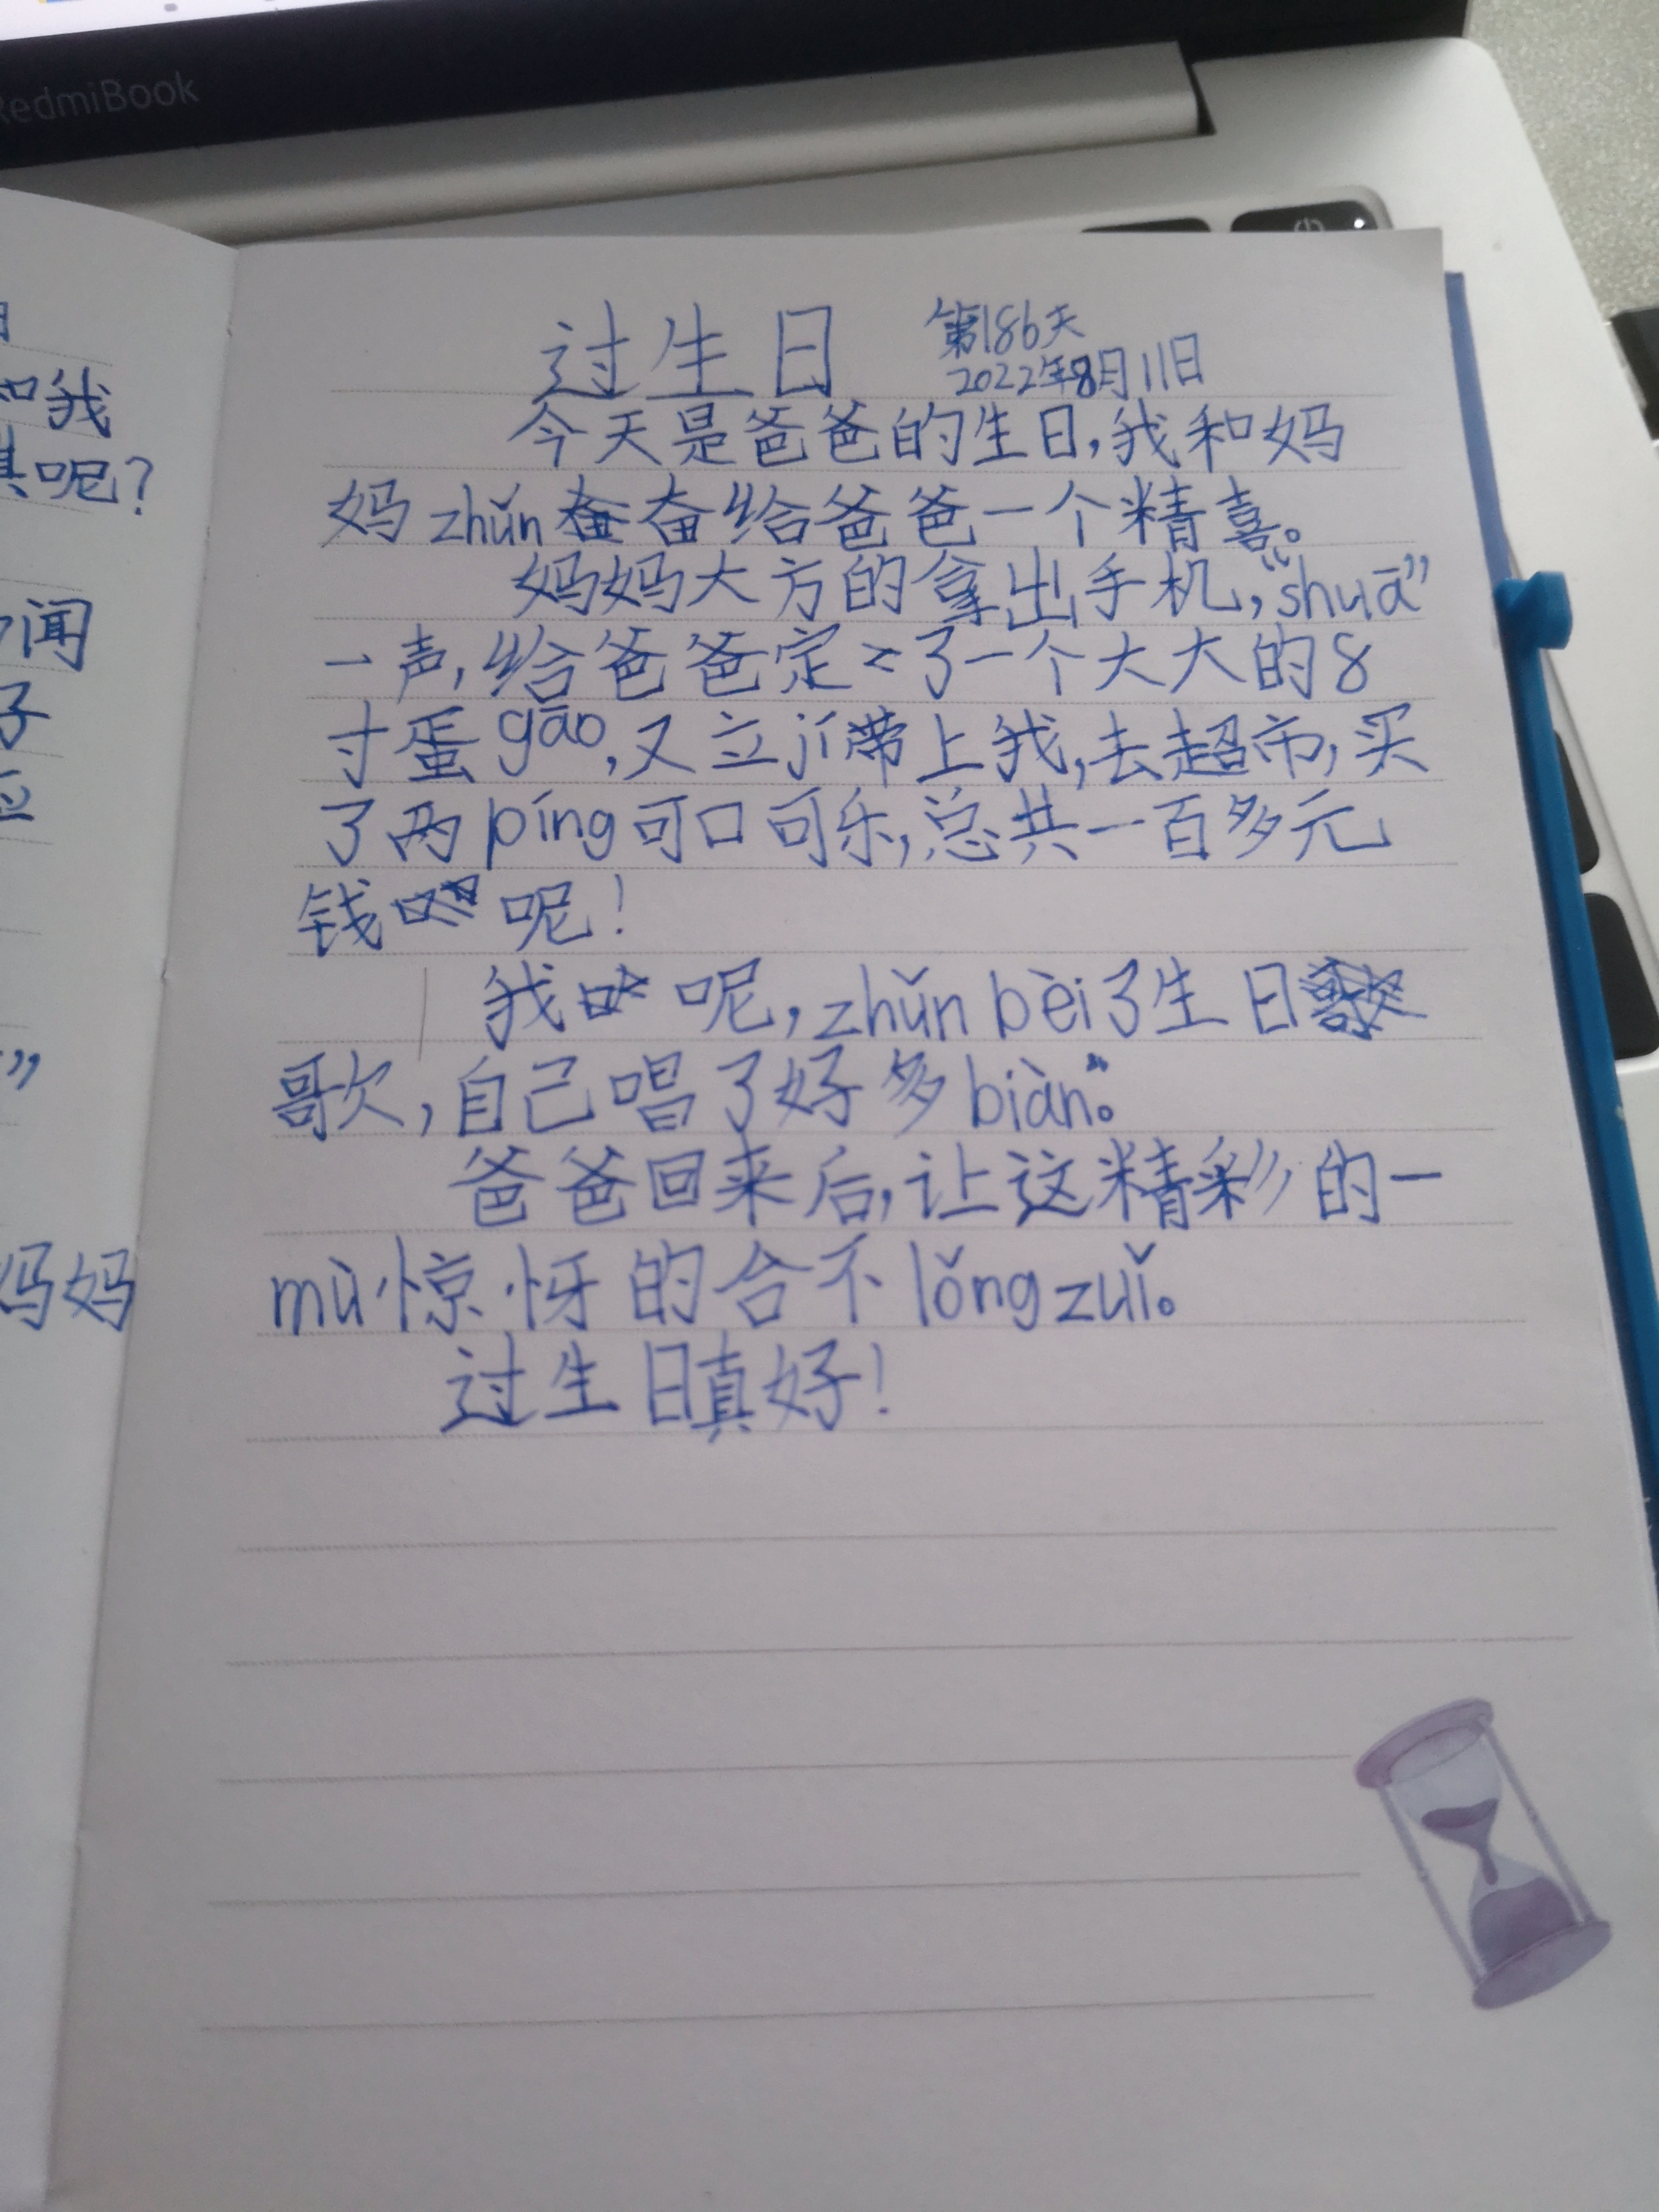 RedmiBook
和我
呢?
闻
子
”
妈妈
过生日
第186天
2022年8月11日
今天是爸爸的生日,我和妈
妈zhǔn奋给爸爸一个精喜。
妈妈大方的拿出手机,“shuā”
一声,给爸爸定了一个大大的8
寸蛋gāo,又立jí带上我,去超市,买
了两píng可口可乐,总共一百多元
钱呢!
我呢,zhǔn bèi了生日
歌,自己唱了好多biàn。
爸爸回来后,让这精彩的一
mù惊呀的合不lǒng zuǐ。
过生日真好!